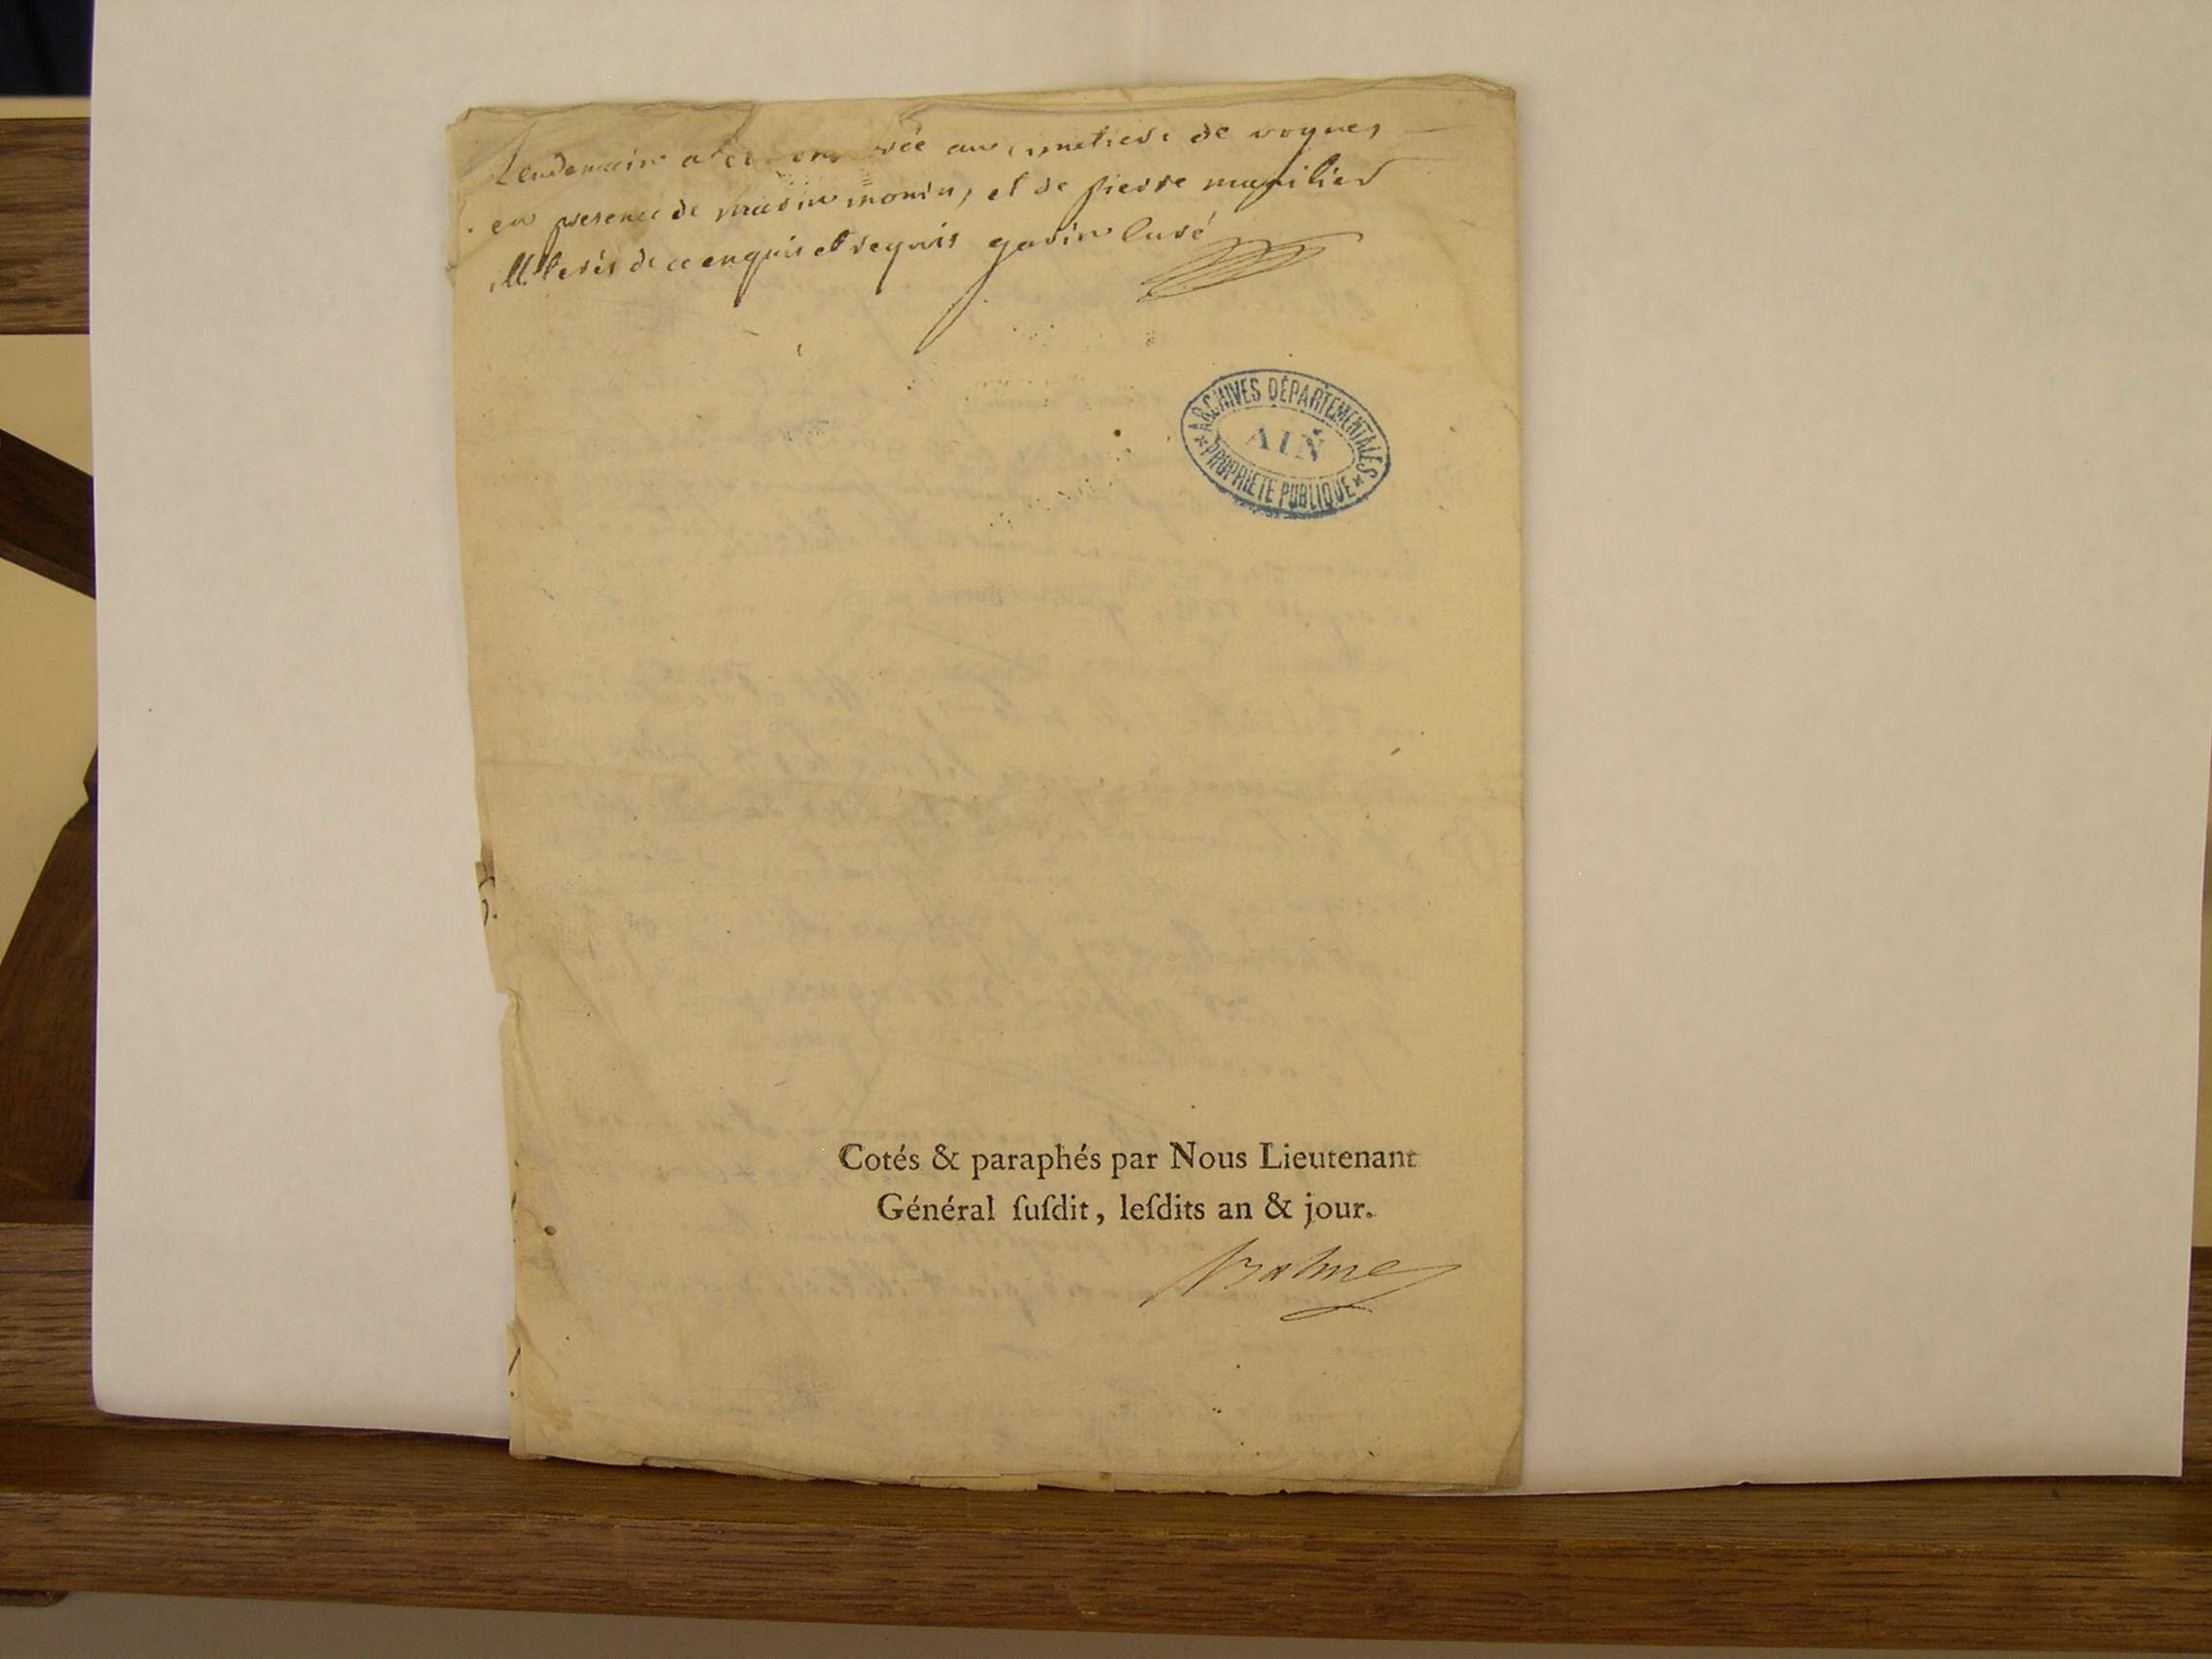 Lendemain a été enterrée au cimetiere de vognes
en presence de marin monin, et de pierre marilier
illiterés de ce enquis et requis gavin Curé
ARCHIVES DÉPARTEMENTALES
AIN
PROPRIETE PUBLIQUE
Cotés & paraphés par Nous Lieutenant
Général ſuſdit, leſdits an & jour.
Balme